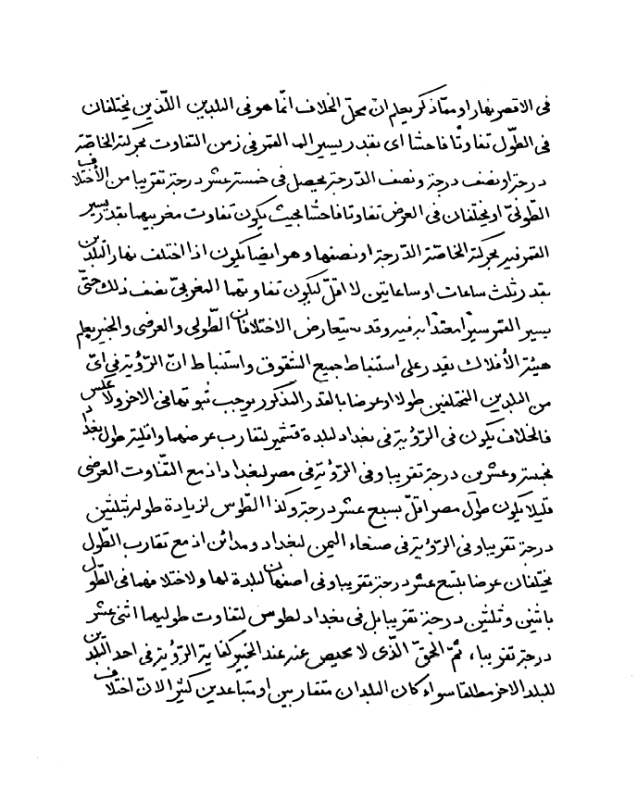 فى الاقصر نهارا و ممّا ذكر يعلم انّ محلّ الخلاف انّما هو فى البلدين اللّذين يختلفان
فى الطّول تفاوتًا فاحشا اى بقدر يسير القمر فى زمن التفاوت بحركته الخاصّة
درجة او نصف درجة و نصف الدّرجة يحصل فى خمسة عشر درجة تقريبا من الأختلاف
الطّولىّ او يختلفان فى العرض تفاوتا فاحشا بحيث يكون تفاوت مغربيهما بقدر يسير
القمر فيه بحركته الخاصّة الدّرجة او نصفها و هو ايضا يكون اذا اختلف نهار البلدين
بقدر ثلث ساعات او ساعاتين لا اقلّ ليكون تفاوتهما المغربىّ نصف ذلك حتّى
يسير القمر سيرا معتدّا به فيه و قد يتعارض الاختلافان الطّولى و العرضى و الخبير بعلم
هيئة الأفلاك يقدر على استنباط جميع الشقوق و استنباط انّ الرّؤية فى اىّ
من البلدين المختلفين طولا او عرضا بالقدر المذكور يوجب ثبوتها فى الاخر ولا عكس
فالخلاف يكون فى الرّؤية فى بغداد لبلدة قشمير لتقارب عرضهما و اقليّة طول بغداد
بخمسة و عشرين درجة تقريبا و فى الرّؤية فى مصر لبغداد اذ مع التّفاوت العرضى
قليلا يكون طول مصر اقلّ بسبع عشر درجة و كذا الطّوس لزيادة طوله بثلثين
درجة تقريبا و فى الرّؤية فى صنعاء اليمن لبغداد و مدائن اذ مع تقارب الطّول
يختلفان عرضا بتسع عشر درجة تقريبا و فى اصفهان لبلدة لها و لاختلافهما فى الطّول
باثنين و ثلثين درجة تقريبا بل فى بغداد لطوس لتفاوت طوليهما اثنى عشر
درجة تقريبا ، ثمّ الحقّ الّذى لا محيص عنه عند الخبير كفاية الرّؤية فى احد البلدين
للبلد الاخر مطلقا سواء كان البلدان متقاربين او متباعدين كثيرا لانّ اختلاف